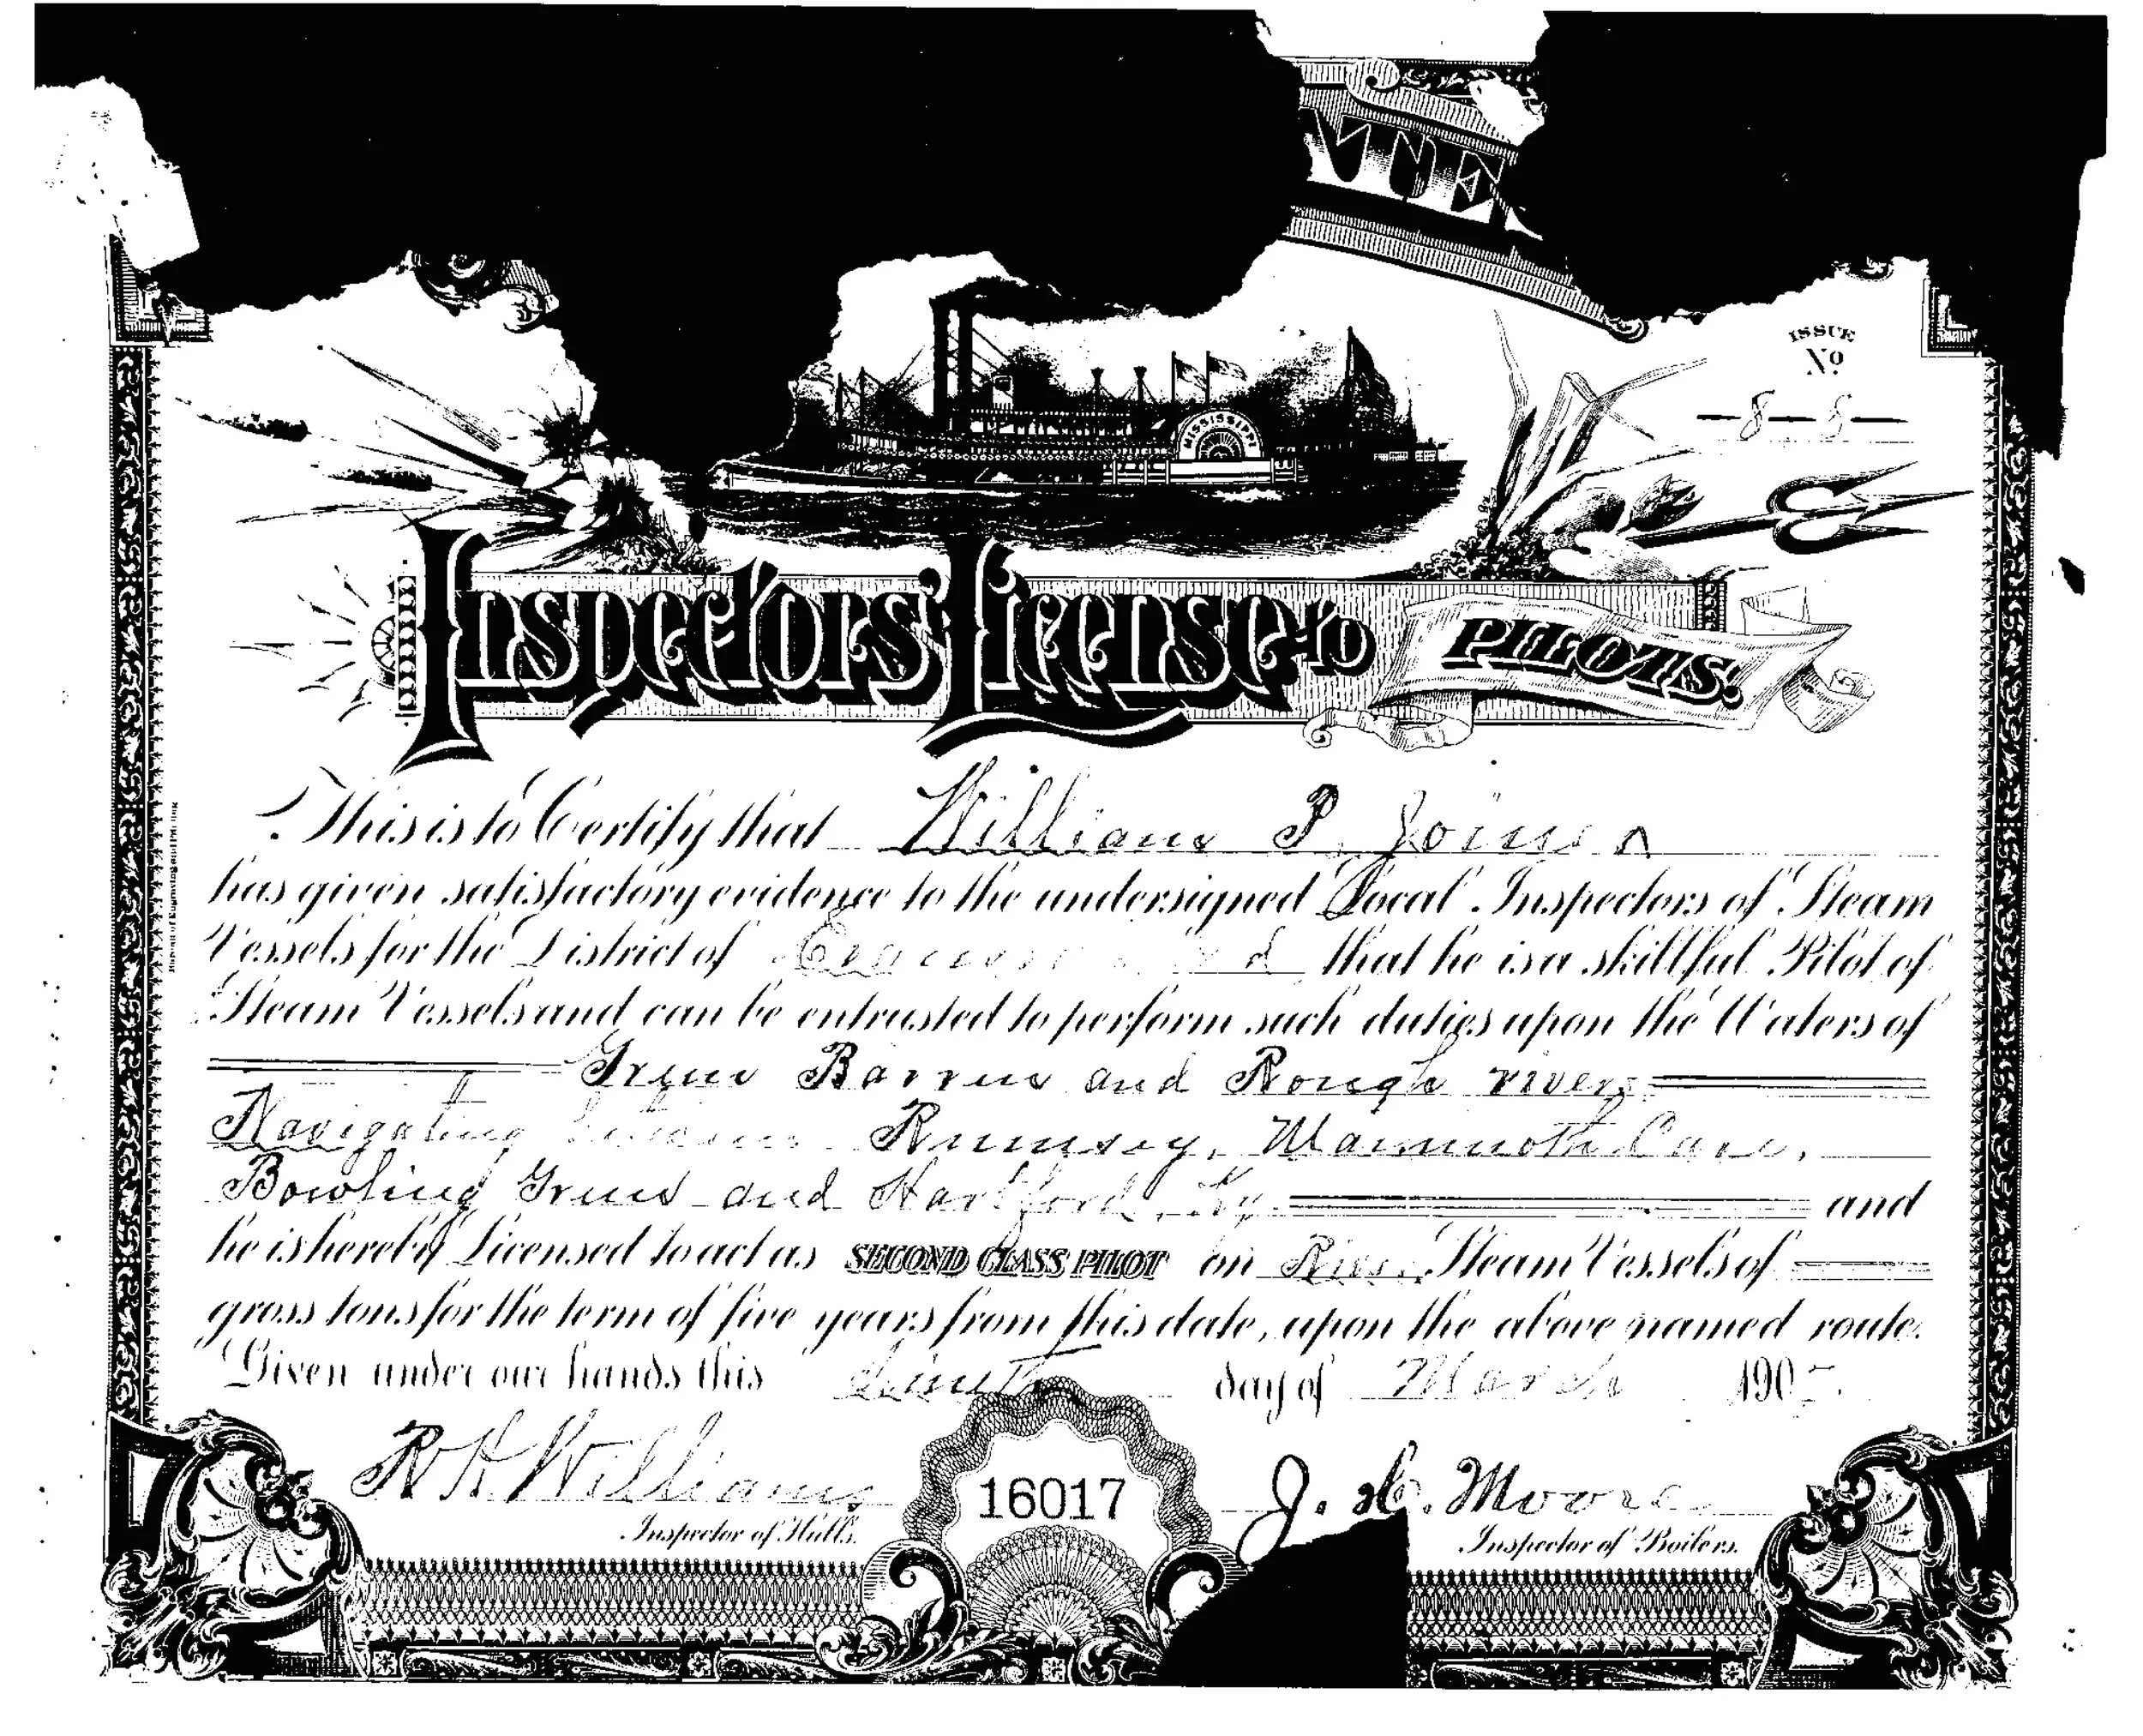 ISSUE
No
8-8
MISSISSIPPI
Inspectors' License to PILOTS.
This is to Certify that William P. Joiner
has given satisfactory evidence to the undersigned Local Inspectors of Steam
Vessels for the District of that he is a skillful Pilot of
Steam Vessels and can be entrusted to perform such duties upon the Waters of
Green Barren and Rough rivers
Navigating between Rumsey, Mammoth Cave,
Bowling Green and Hartford, Ky. and
he is hereby Licensed to act as SECOND CLASS PILOT on River Steam Vessels of
gross tons for the term of five years from this date, upon the above named route.
Given under our hands this day of March 190
R H Williams
Inspector of Hulls.
16017
J. Moore
Inspector of Boilers.